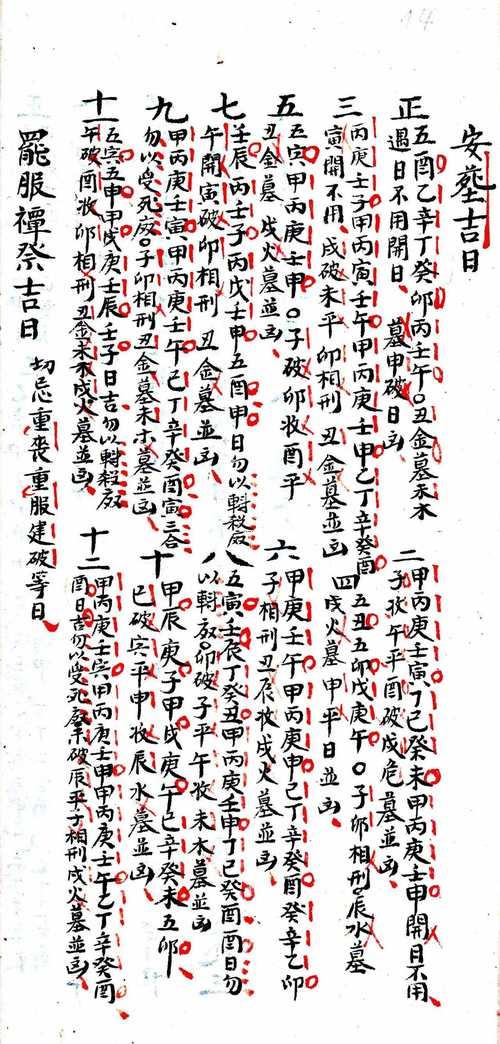 14
安葬吉日
正 五酉乙辛丁癸卯丙壬午〇丑金墓未木
遇日不用開日、墓申破日凶、
二 甲丙庚壬寅、丁己癸未甲丙庚壬申開日不用
子收午平酉破戌危墓並凶、
三 丙庚壬子甲丙寅壬午甲丙庚壬申乙丁辛癸酉
寅開不用、戌破未平卯相刑丑金墓並凶
四 五丑五卯戊庚午〇子卯相刑辰水墓
戌火墓申平日並凶、
五 五寅甲丙庚壬申〇子破卯收酉平
丑金墓戌火墓並凶、
六 甲庚壬午甲丙庚申己丁辛癸酉癸辛乙卯
子相刑丑辰收戌火墓並凶、
七 壬辰丙壬子丙戊壬申五酉申日勿以斢殺廄
午開寅破卯相刑丑金墓並凶、
八 五寅壬辰丁癸丑甲丙庚壬申丁己癸酉酉日勿
以斢廄卯破子平午收未木墓並凶
九 甲丙庚壬寅、甲丙庚壬午乙丁辛癸酉寅三合
勿以受死廄〇子卯相刑丑金墓未木墓並凶、
十 甲辰庚子甲戌庚午己辛癸未五卯
巳破寅平申收辰水墓並凶
十一 五寅五申甲戌庚壬辰壬子日吉勿以斢殺廄
午破酉收卯相刑丑金未木戌火墓並凶
十二 甲丙庚壬寅甲丙庚壬申甲丙庚壬午乙丁辛癸酉
酉日吉勿以受死廄未破辰平子相刑戌火墓並凶、
罷服禫祭吉日 切忌重喪重服建破等日、